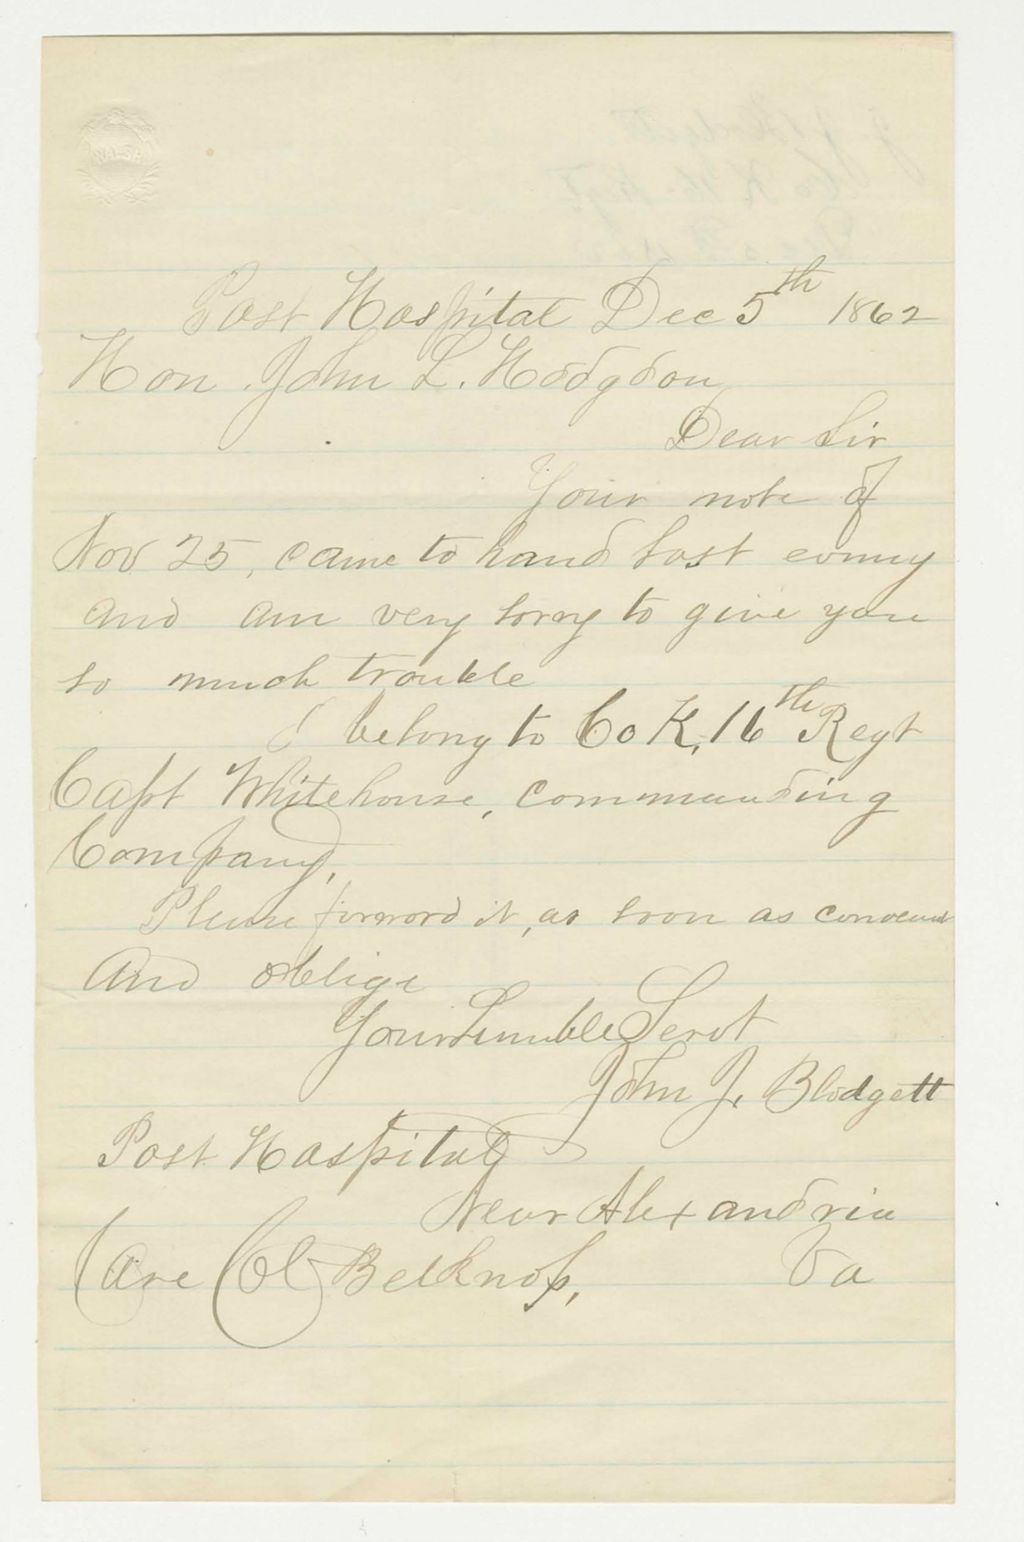 Post Hospital Dec 5th 1862
Hon. John L. Hodgdon
Dear Sir
Your note of
Nov 25, came to hand last evning
and am very sorry to give you
so much trouble
I belong to Co K, 16th Regt
Capt Whitehouse, commanding
Company.
Please forword it, as soon as convenient
And oblige
Your humble Servt
John J. Blodgett
Post Hospital
Near Alexandria
Va
Care Col Belknap,